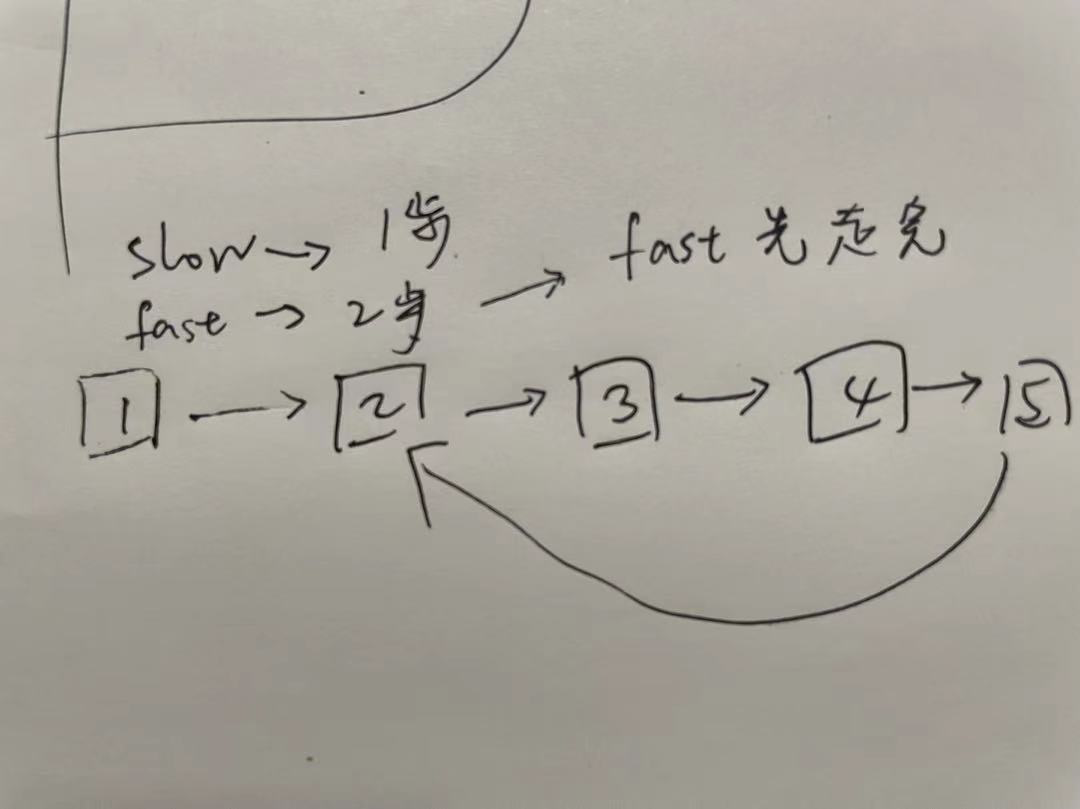 slow → 1步
fast → 2步 → fast 先走完
1 → 2 → 3 → 4 → 5